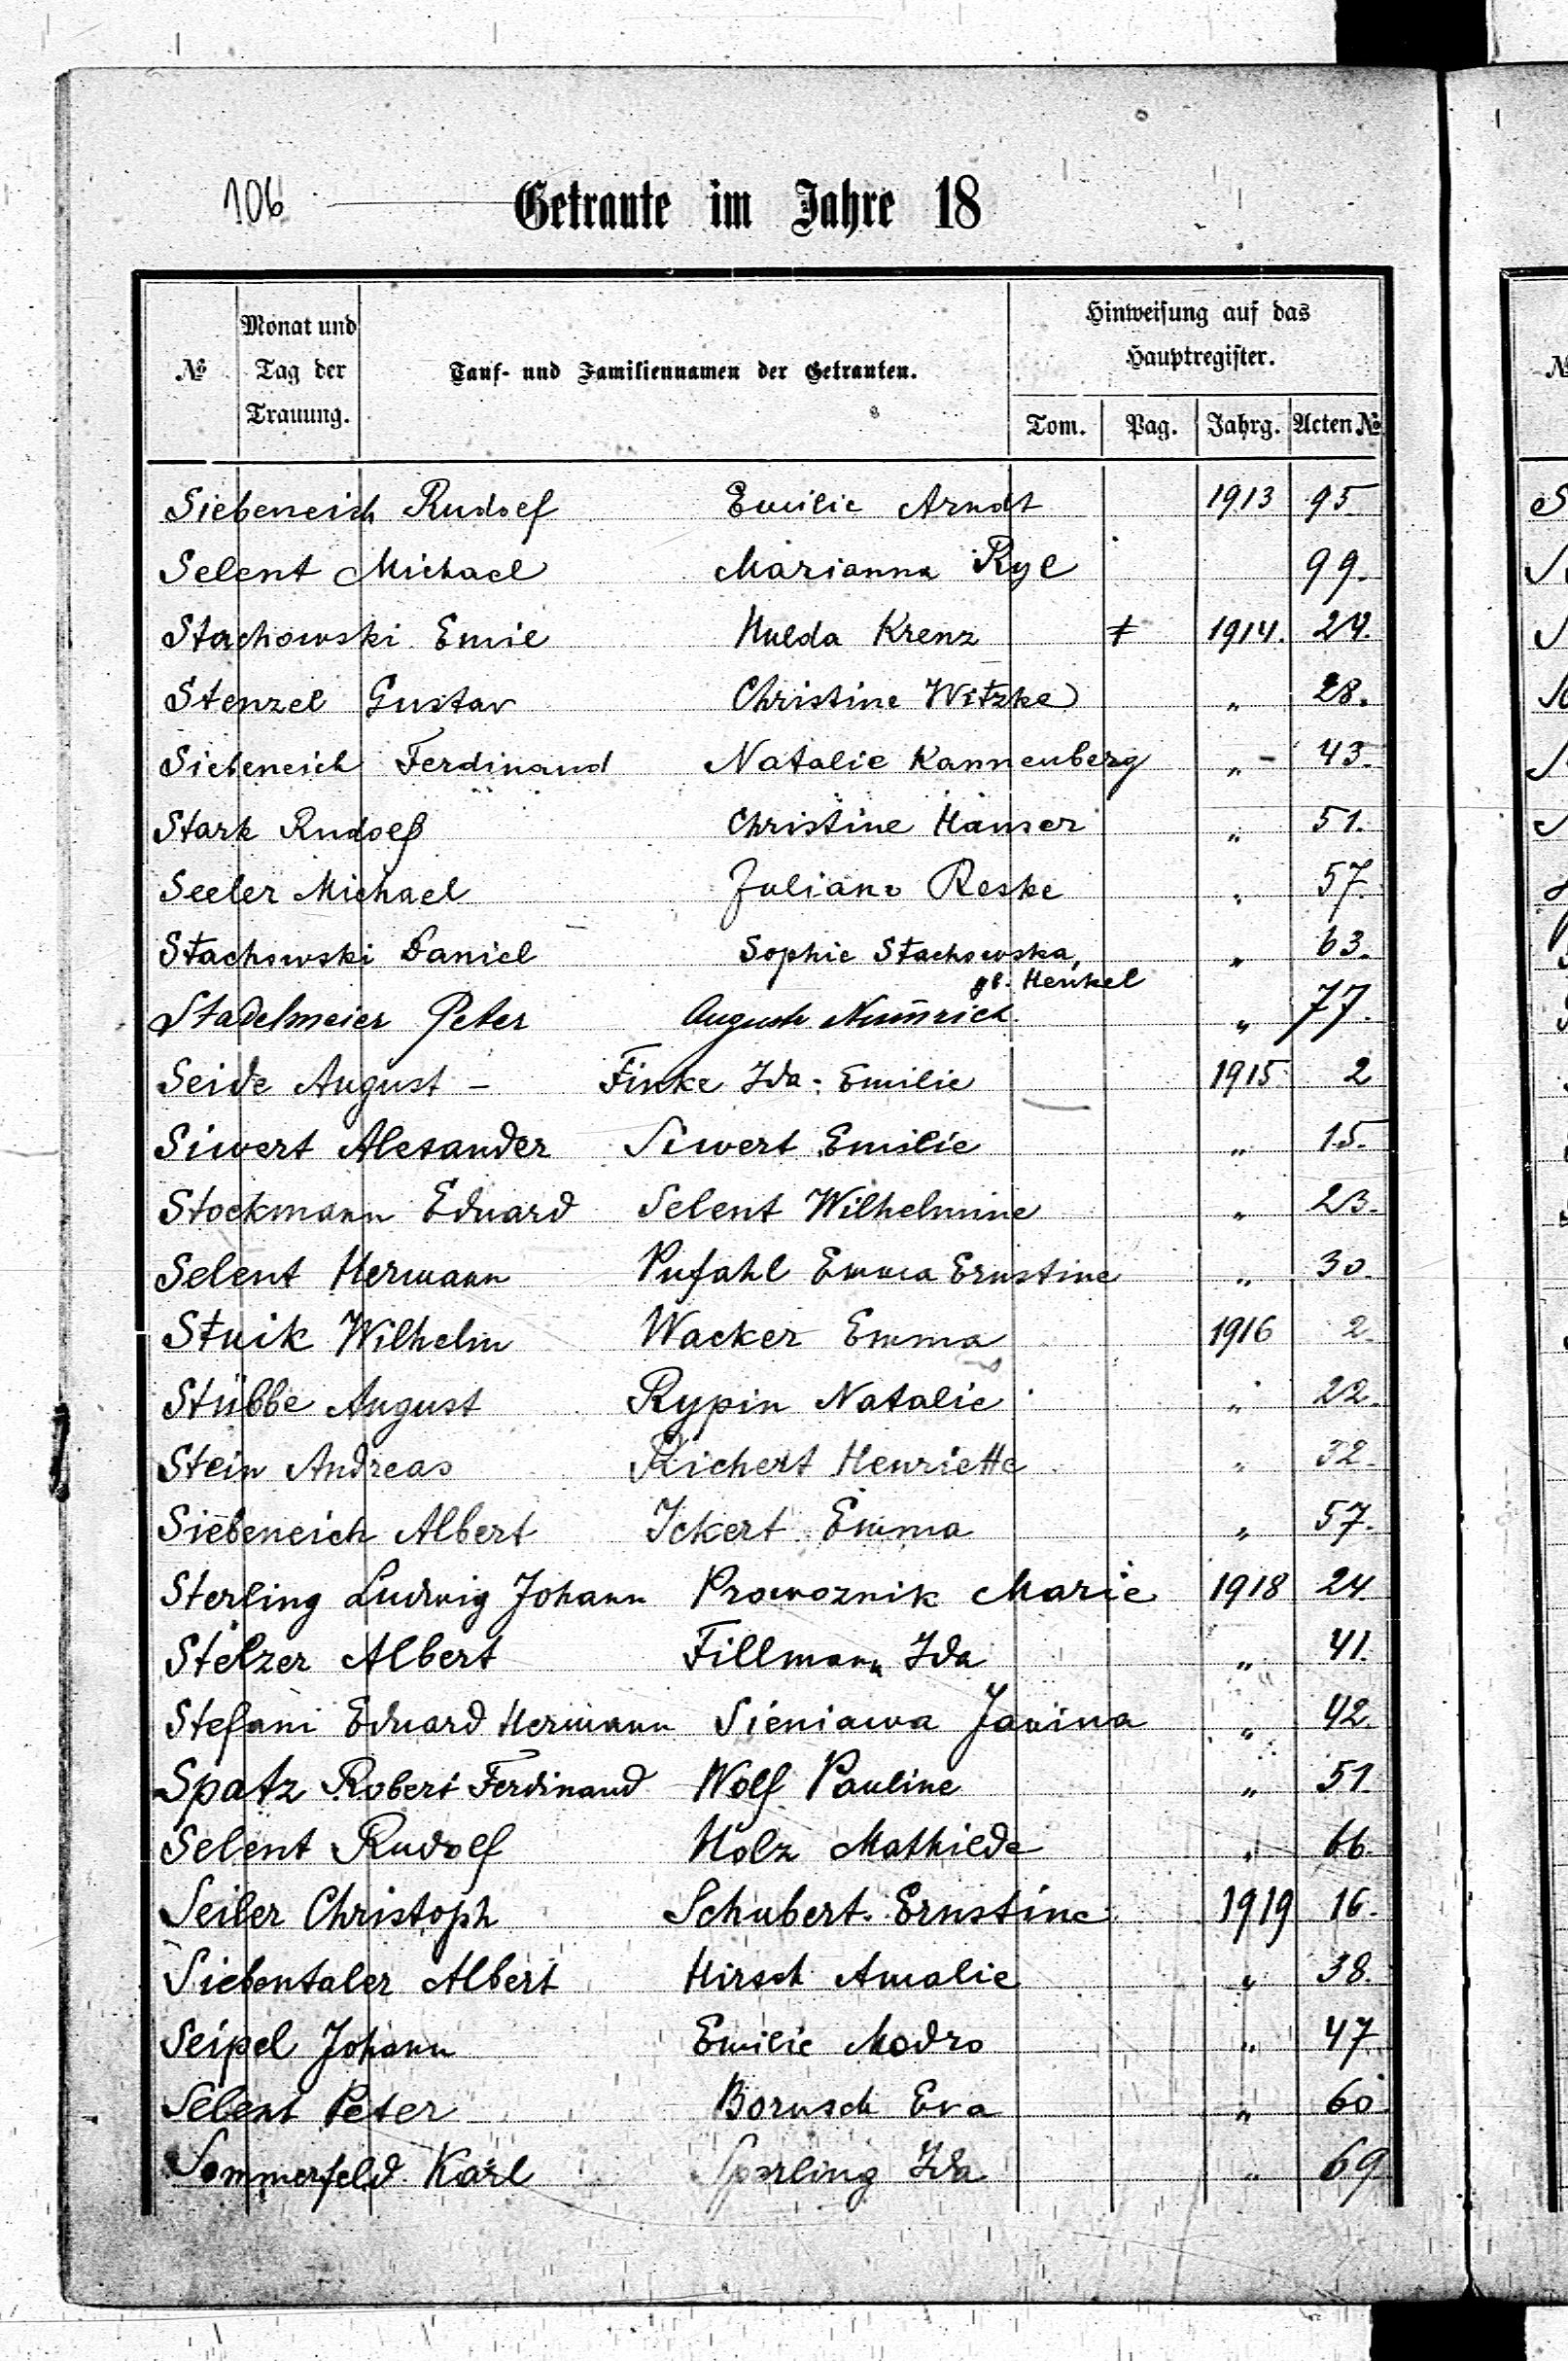 106
Getraute im Jahre 18
№
Monat und Tag der Trauung.
Tauf- und Familiennamen der Getrauten.
Hinweisung auf das Hauptregister.
Tom. Pag. Jahrg. Acten №
Siebeneich Rudolf Emilie Arndt 1913 95
Selent Michael Marianna Ryl 99.
Stachowski Emil Hulda Krenz ≠ 1914. 24.
Stenzel Gustav Christine Witzke " 28.
Siebeneich Ferdinand Natalie Kannenberg " - 43.
Stark Rudolf Christine Hauser " 51.
Seeler Michael Juliane Reske " 57.
Stachowski Daniel Sophie Stachowska, " 63.
gb. Henkel
Stadelmeier Peter Auguste " 77.
Seide August - Finke Ida: Emilie 1915 2
Siwert Alexander Siwert Emilie " 15.
Stockmann Eduard Selent Wilhelmine " 23.
Selent Hermann Pufahl Emma Ernstine " 30.
Stuik Wilhelm Wacker Emma 1916 2.
Stübbe August Rypin Natalie " 22.
Stein Andreas Richert Henriette " 32.
Siebeneich Albert Ickert Emma " 57.
Sterling Ludwig Johann Prowoznik Marie 1918 24
Stelzer Albert Fillmann Ida " 41.
Stefani Eduard Hermann Sieniawa Janina " 42.
Spatz Robert Ferdinand Wolf Pauline " 51.
Selent Rudolf Holz Mathilde " 66.
Seiler Christoph Schubert Ernstine 1919 16.
Siebentaler Albert Hirsch Amalie " 38.
Seipel Johann Emilie Modro " 47
Selent Peter Borusch Eva " 60
Sommerfeld Karl Sperling Ida " 69